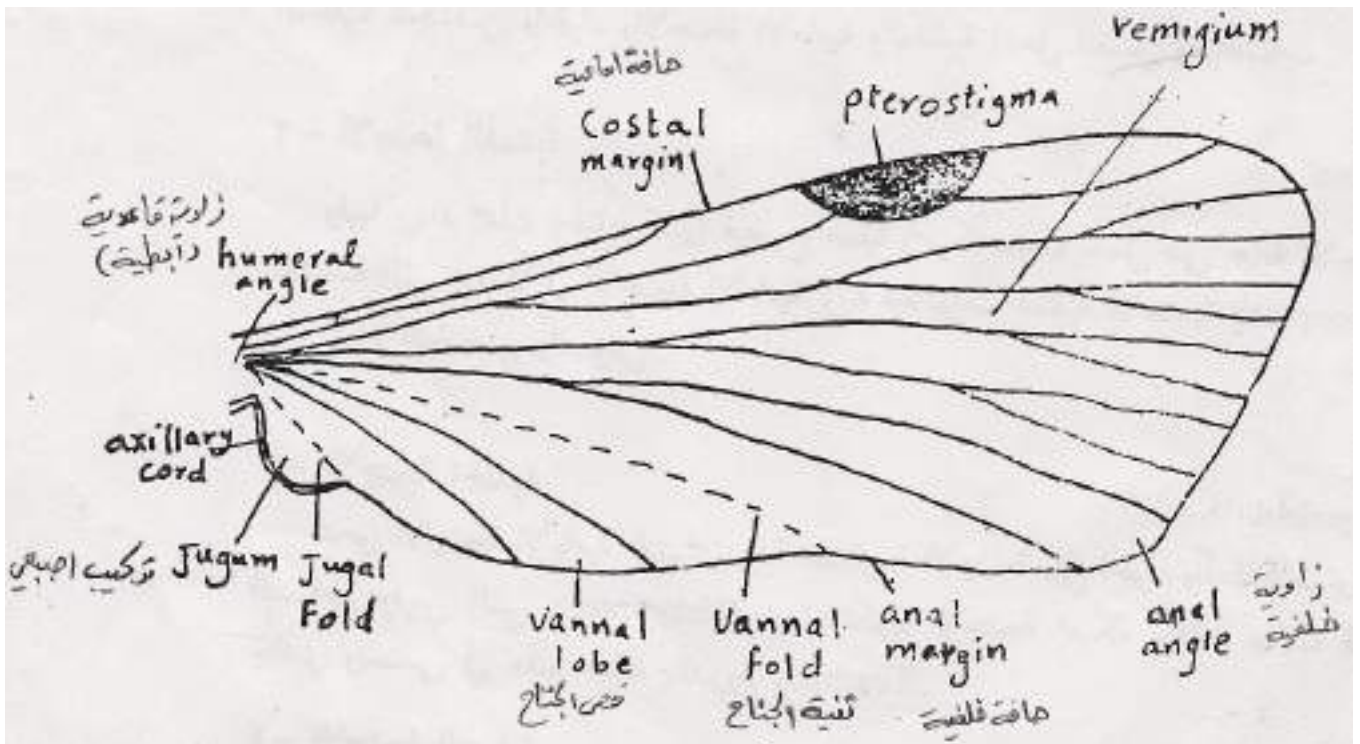 remigium
حافة امامية
pterostigma
Costal
margin
زاوية قاعدية
(ابطية)
humeral
angle
axillary
cord
تركيب اصبعي
Jugum
Jugal
Fold
vannal
lobe
فص الجناح
Vannal
fold
ثنية الجناح
anal
margin
حافة خلفية
anal
angle
زاوية
خلفية